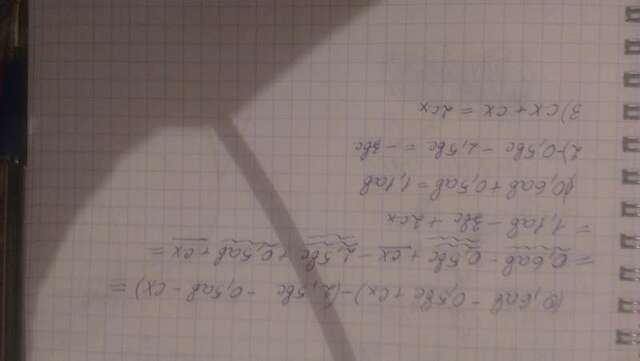 (0,6ab - 0,5bc + cx) - (2,5bc - 0,5ab - cx) =
= 0,6ab - 0,5bc + cx - 2,5bc + 0,5ab + cx =
= 1,1ab - 3bc + 2cx
1) 0,6ab + 0,5ab = 1,1ab
2) -0,5bc - 2,5bc = -3bc
3) cx + cx = 2cx